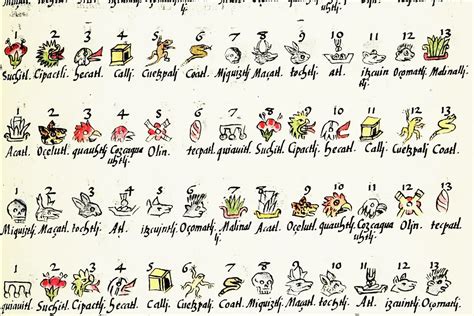 1 2 3 4 5 6 7 8 9 10 11 12 13
Suchitl. Cipactli. hecatl. Callj. Cuetzpalj. Coatl. Miquiztlj. Maçatl. tochtlj. atl. itzcuin Oçomatlj. Malinallj
1 2 3 4 5 6 7 8 9 10 11 12 13
Acatl. Oçelutl. quauhtlj. Cozcaqua Olin. tecpatl. quiauitl. Suchitl. Cipactlj. hecatl. Callj. Cuetzpalj Coatl.
uhtlj.
1 2 3 4 5 6 7 8 9 10 11 12 13
Miquiztlj. Maçatl. tochtlj. Atl. itzcuintlj. Oçomatlj. Malinal Acatl. Oçelutl. quauhtlj. Cozcaqua Olin. tecpatl.
lj. uhtlj.
1 2 3 4 5 6 7 8 9 10 11 12 13
quiauitl. Suchitl. Cipactlj. hecatl. Callj. Cuetzpalj. Coatl. Miquiztlj. Maçatl. tochtlj. Atl. itzcuintlj. Oçomatlj.